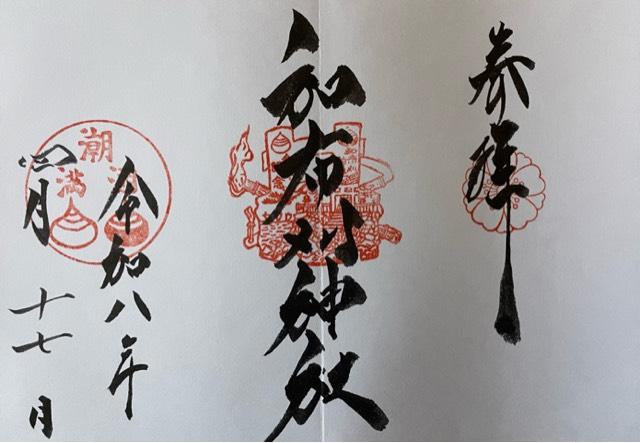 奉拝
和布刈神社
令和八年
四月十七日
潮満